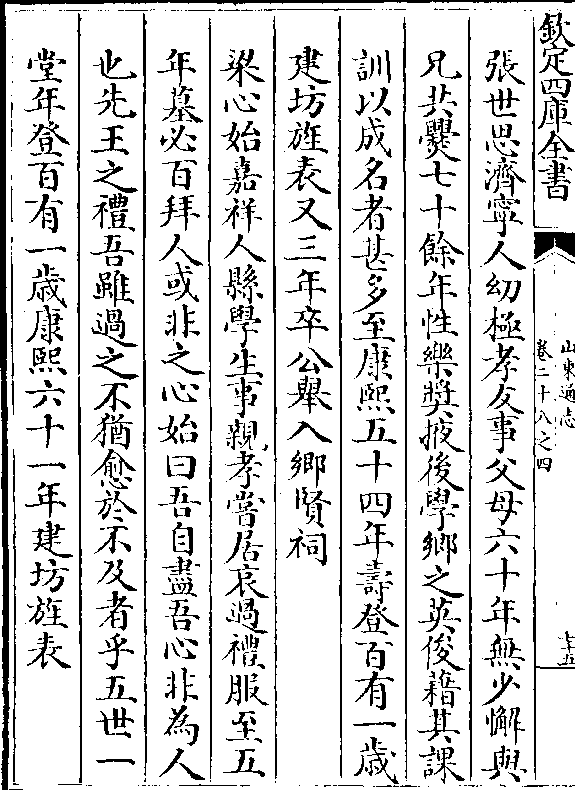 欽定四庫全書
山東通志
卷二十八之四
七十五
張世思濟寧人幼極孝友事父母六十年無少懈與
兄共爨七十餘年性樂奬掖後學鄉之英俊藉其課
訓以成名者甚多至康熙五十四年壽登百有一歳
建坊旌表又三年卒公舉入鄉賢祠
梁心始嘉祥人縣學生事親孝嘗居哀過禮服至五
年墓必百拜人或非之心始曰吾自盡吾心非為人
也先王之禮吾雖過之不猶愈於不及者乎五世一
堂年登百有一歳康熙六十一年建坊旌表